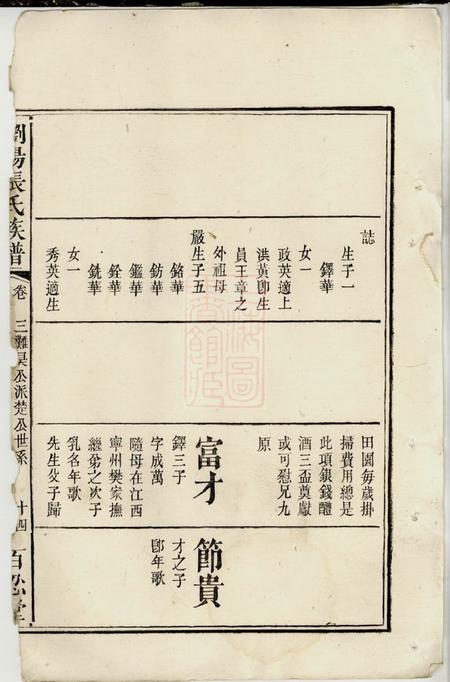 誌
生子一
鐸華
女一
政英適上
洪黃卽生
員王章之
外祖母
嚴生子五
銘華
鈁華
鑑華
銓華
銑華
女一
秀英適生
田園每歲掛
掃費用總是
此項銀錢醴
酒三盃奠獻
或可慰兄九
原
富才
鐸三子
字成萬
隨母在江西
寧州樊家撫
繼弟之次子
乳名年歌
先生父子歸
節貴
才之子
卽年歌
瀏陽張氏族譜
卷
三難昊公派楚公世系
十四
百忍堂